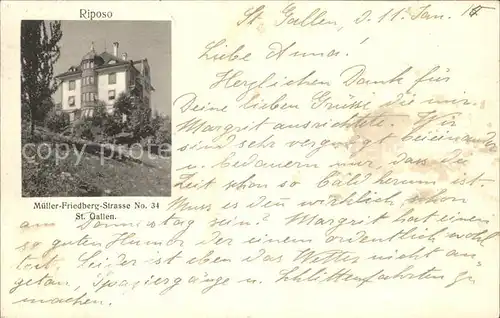 Riposo
St. Gallen, d. 11. Jan. 15
Liebe Anna!
Herzlichen Dank für
Deine lieben Grüsse die mir
Margrit ausrichtete. Wir
sind sehr vergnügt beieinander
u. bedauern nur, dass die
Zeit schon so bald herum ist.
Muss es den wirklich schon
am Donnerstag sein? Margrit hat einen
so guten Humor der einem ordentlich wohl
tut. Leider ist eben das Wetter nicht an-
getan, Spaziergänge u. Schlittenfahrten zu
machen.
Müller-Friedberg-Strasse No. 34
St. Gallen.
copyright